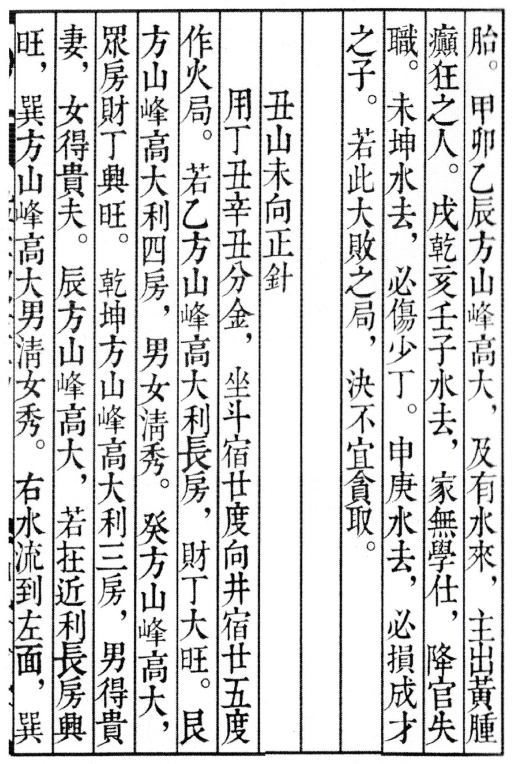 胎。甲卯乙辰方山峰高大，及有水來，主出黃腫
癲狂之人。戌乾亥壬子水去，家無學仕，降官失
職。未坤水去，必傷少丁。申庚水去，必損成才
之子。若此大敗之局，決不宜貪取。
丑山未向正針
用丁丑辛丑分金，坐斗宿廿度向井宿廿五度
作火局。若乙方山峰高大利長房，財丁大旺。艮
方山峰高大利四房，男女清秀。癸方山峰高大，
眾房財丁興旺。乾坤方山峰高大利三房，男得貴
妻，女得貴夫。辰方山峰高大，若在近利長房興
旺，巽方山峰高大男清女秀。右水流到左面，巽